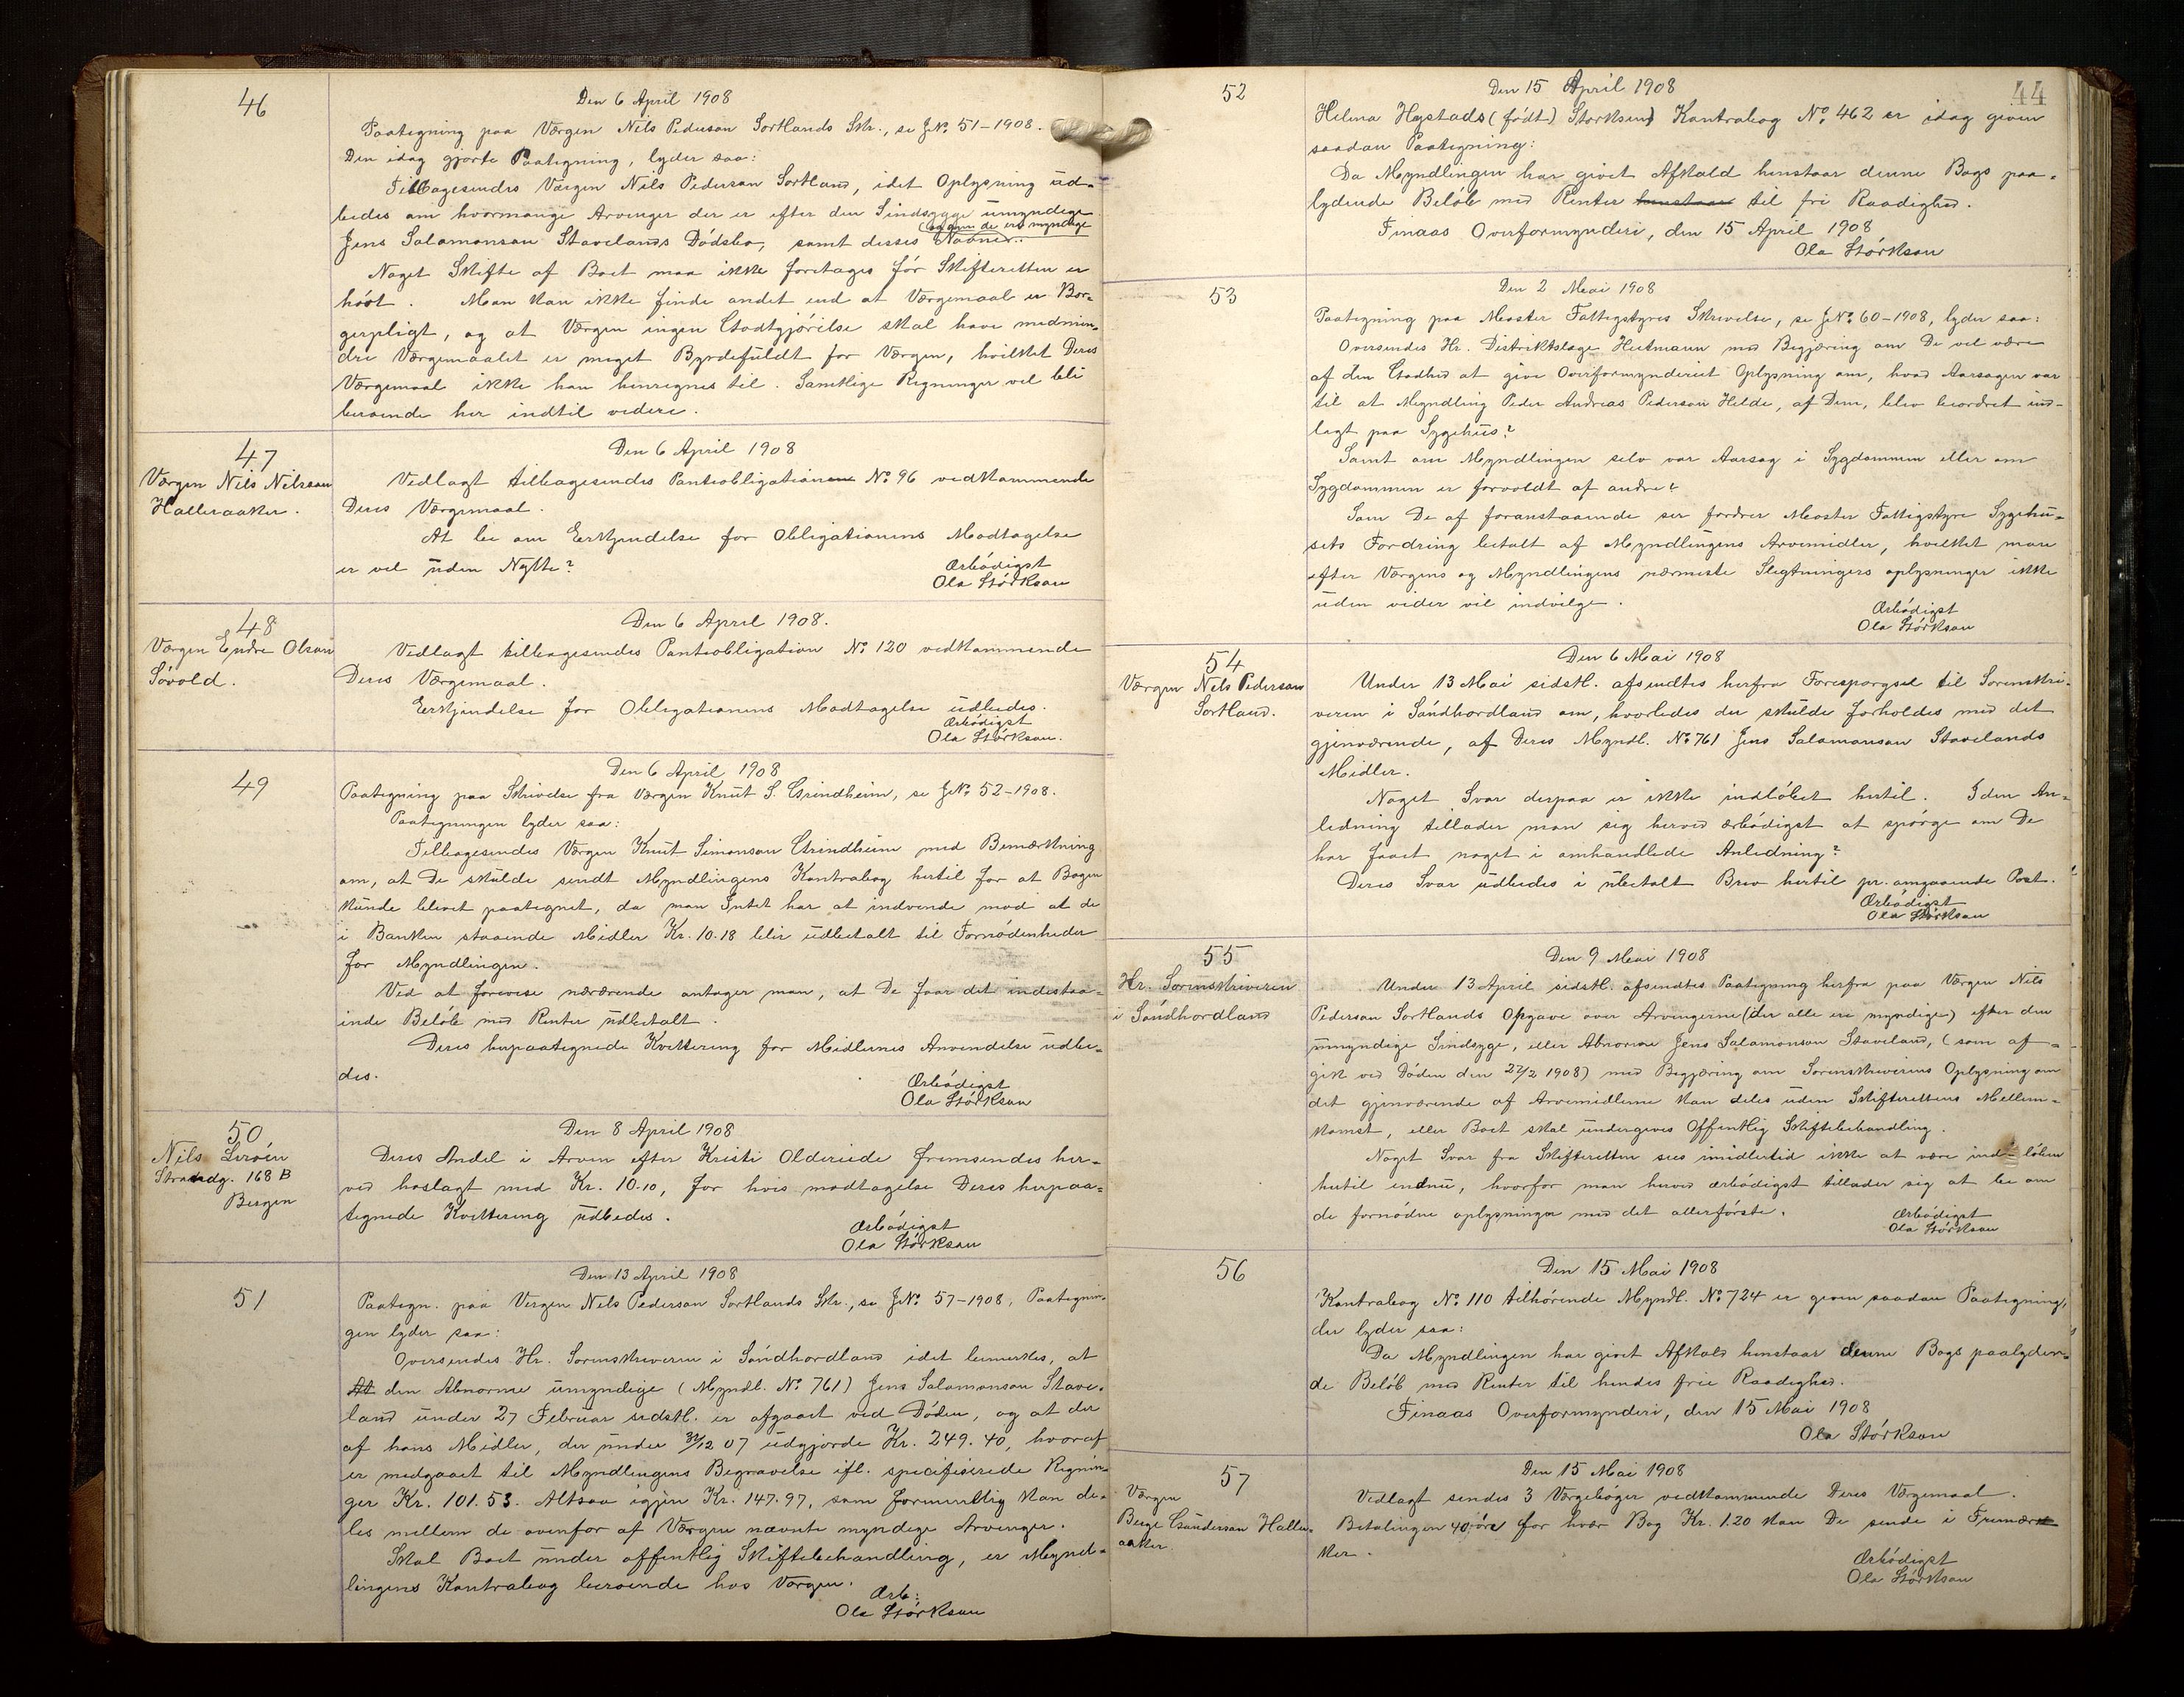 46
Den 6 April 1908
Paategning paa Værgen Nils Pederson Sortlands Skr., se J№. 51-1908.
Den idag gjorte Paategning, lyder saa:
Tilbagesendes Værgen Nils Pederson Sortland, idet Oplysning ud-
bedes om hvormange Arvinger der er efter den Sindssyge umyndige
Jens Salamonson Stavelands Dödsbo, samt disses Navner.
og om de ere myndige
Noget Skifte af Boet maa ikke foretages för Skifteretten er
hört. Man kan ikke finde andet end at Værgemaal er Bor-
gerpligt, og at Værgen ingen Godtgjörelse skal have medmin-
dre Værgemaalet er meget Byrdefuldt for Værgen, hvilket Deres
Værgemaal ikke kan henregnes til. Samtlige Regninger vel bli
beroende her indtil videre.
47
Værgen Nils Nilsson
Halleraaker.
Den 6 April 1908
Vedlagt tilbagesendes Panteobligationen № 96 vedkommende
Deres Værgemaal.
At be om Erkjendelse for Obligationens Modtagelse
er vel uden Nytte?
Ærbödigst
Ola Störkson
48
Værgen Endre Olson
Sövold.
Den 6 April 1908.
Vedlagt tilbagesendes Panteobligation № 120 vedkommende
Deres Værgemaal.
Erkjendelse for Obligationens Modtagelse udbedes.
Ærbödigst
Ola Störkson.
49
Den 6 April 1908
Paategning paa Skrivelse fra Værgen Knut S. Grindheim, se J№. 52-1908.
Paategningen lyder saa:
Tilbagesendes Værgen Knut Simonson Grindheim med Bemærkning
om, at De skulde sendt Myndlingens Kontrabog hertil for at Bogen
kunde blevet paategnet, da man Intet har at indvende mod at de
i Banken staaende Midler Kr. 10.18 blir udbetalt til Fornödenheder
for Myndlingen.
Ved at forevise nærværende antager man, at De faar det indestaa-
ende Belöb med Renter udbetalt.
Deres herpaategnede Kvittering for Midlernes Anvendelse udbe-
des.
Ærbödigst
Ola Störkson
50
Nils Leröen
Strandg. 168 B
Bergen
Den 8 April 1908
Deres Andel i Arven efter Kristi Oldereide fremsendes her-
ved hoslagt med Kr. 10.10, for hvis modtagelse Deres herpaa-
tegnede Kvittering udbedes.
Ærbödigst
Ola Störkson
51
Den 13 April 1908
Paategn. paa Vergen Nils Pederson Sortlands Skr., se J№. 57-1908, Paategnin-
gen lyder saa:
Oversendes Hr. Sorenskriveren i Söndhordland idet bemerkes, at
At den Abnorme umyndige (Myndl. № 761) Jens Salamonson Stave-
land under 27 Februar sidstl. er afgaaet ved Döden, og at der
af hans Midler, der under 31/12 07 udgjorde Kr. 249.40, hvoraf
er medgaaet til Myndlingens Begravelse ifl. specifiserede Regnin-
ger Kr. 101.53. Altsaa igjen Kr. 147.97, som formentlig kan de-
les mellem de ovenfor af Værgen nævnte myndige Arvinger.
Skal Boet under offentlig Skiftebehandling, er Mynd-
lingens Kontrabog beroende hos Værgen.
Ærb:
Ola Störkson
44
52
Den 15 April 1908
Helena Hystads (född) Storksen) Kontrabog №. 462 er idag given
saadan Paategning:
Da Myndlingen har givet Afkald henstaar denne Bogs paa-
lydende Belöb med Renter henstaar til fri Raadighed.
Finaas Overformynderi, den 15 April 1908
Ola Störkson
53
Den 2 Mai 1908
Paategning paa Moster Fattigstyres Skrivelse, se J№. 60-1908, lyder saa:
Oversendes Hr. Distriktslæge Heitmann med Begjæring om De vil være
af den Godhed at give Overformynderiet Oplysning om, hvad Aarsagen var
til at Myndling Peder Andreas Pederson Helde, af Dem, blev beordret ind-
lagt paa Sygehus?
Samt om Myndlingen selv var Aarsag i Sygdommen eller om
Sygdommen er forvoldt af andre?
Som De af foranstaaende ser fordrer Moster Fattigstyre Sygehu-
sets Fordring betalt af Myndlingens Arvemidler, hvilket man
efter Værgens og Myndlingens nærmeste Slegtningers oplysninger ikke
uden vider vil indvilge.
Ærbödigst
Ola Störkson
54
Værgen Nils Pederson
Sortland.
Den 6 Mai 1908
Under 13 Mai sidstl. afsendtes herfra Forespørgsel til Sorenskri-
veren i Söndhordland om, hvorledes der skulde forholdes med det
gjenværende, af Deres Myndl. № 761 Jens Salamonson Stavelands
Midler.
Noget Svar derpaa er ikke indlöbet hertil. I den An-
ledning tillader man sig herved ærbödigst at spörge om De
har faaet noget i omhandlede Anledning?
Deres Svar udbedes i ubetalt Brev hertil pr. omgaaende Post.
Ærbödigst
Ola Störkson
55
Hr. Sorenskriveren
i Söndhordland
Den 9 Mai 1908
Under 13 April sidstl. afsendtes Paategning herfra paa Værgen Nils
Pederson Sortlands Opgave over Arvingerne (der alle ere myndige) efter den
umyndige Sindsyge, eller Abnorme Jens Salamonson Staveland, (som af-
gik ved Döden den 27/2 1908) med Begjæring om Sorenskriverens Oplysning om
det gjenværende af Arvemidlerne kan deles uden Skifterettens Mellem-
komst, eller Boet skal undergives Offentlig Skiftebehandling.
Noget Svar fra Skifteretten sees imidlertid ikke at være ind-löben
hertil endnu, hvorfor man herved ærbödigst tillader sig at be om
de fornödne oplysninger med det allerförste.
Ærbödigst
Ola Störkson
56
Den 15 Mai 1908
Kontrabog №. 110 tilhörende Myndl. № 724 er given saadan Paategning,
der lyder saa:
Da Myndlingen har givet Afkald henstaar denne Bogs paalyden-
de Belöb med Renter til hendes frie Raadighed.
Finaas Overformynderi, den 15 Mai 1908
Ola Störkson
57
Værgen
Berge Gunderson Haller-
aaker.
Den 15 Mai 1908
Vedlagt sendes 3 Værgeböger vedkommende Deres Værgemaal.
Betalingen 40 öre for hver Bog Kr. 1.20 kan De sende i Frimær-
ker.
Ærbödigst
Ola Störkson